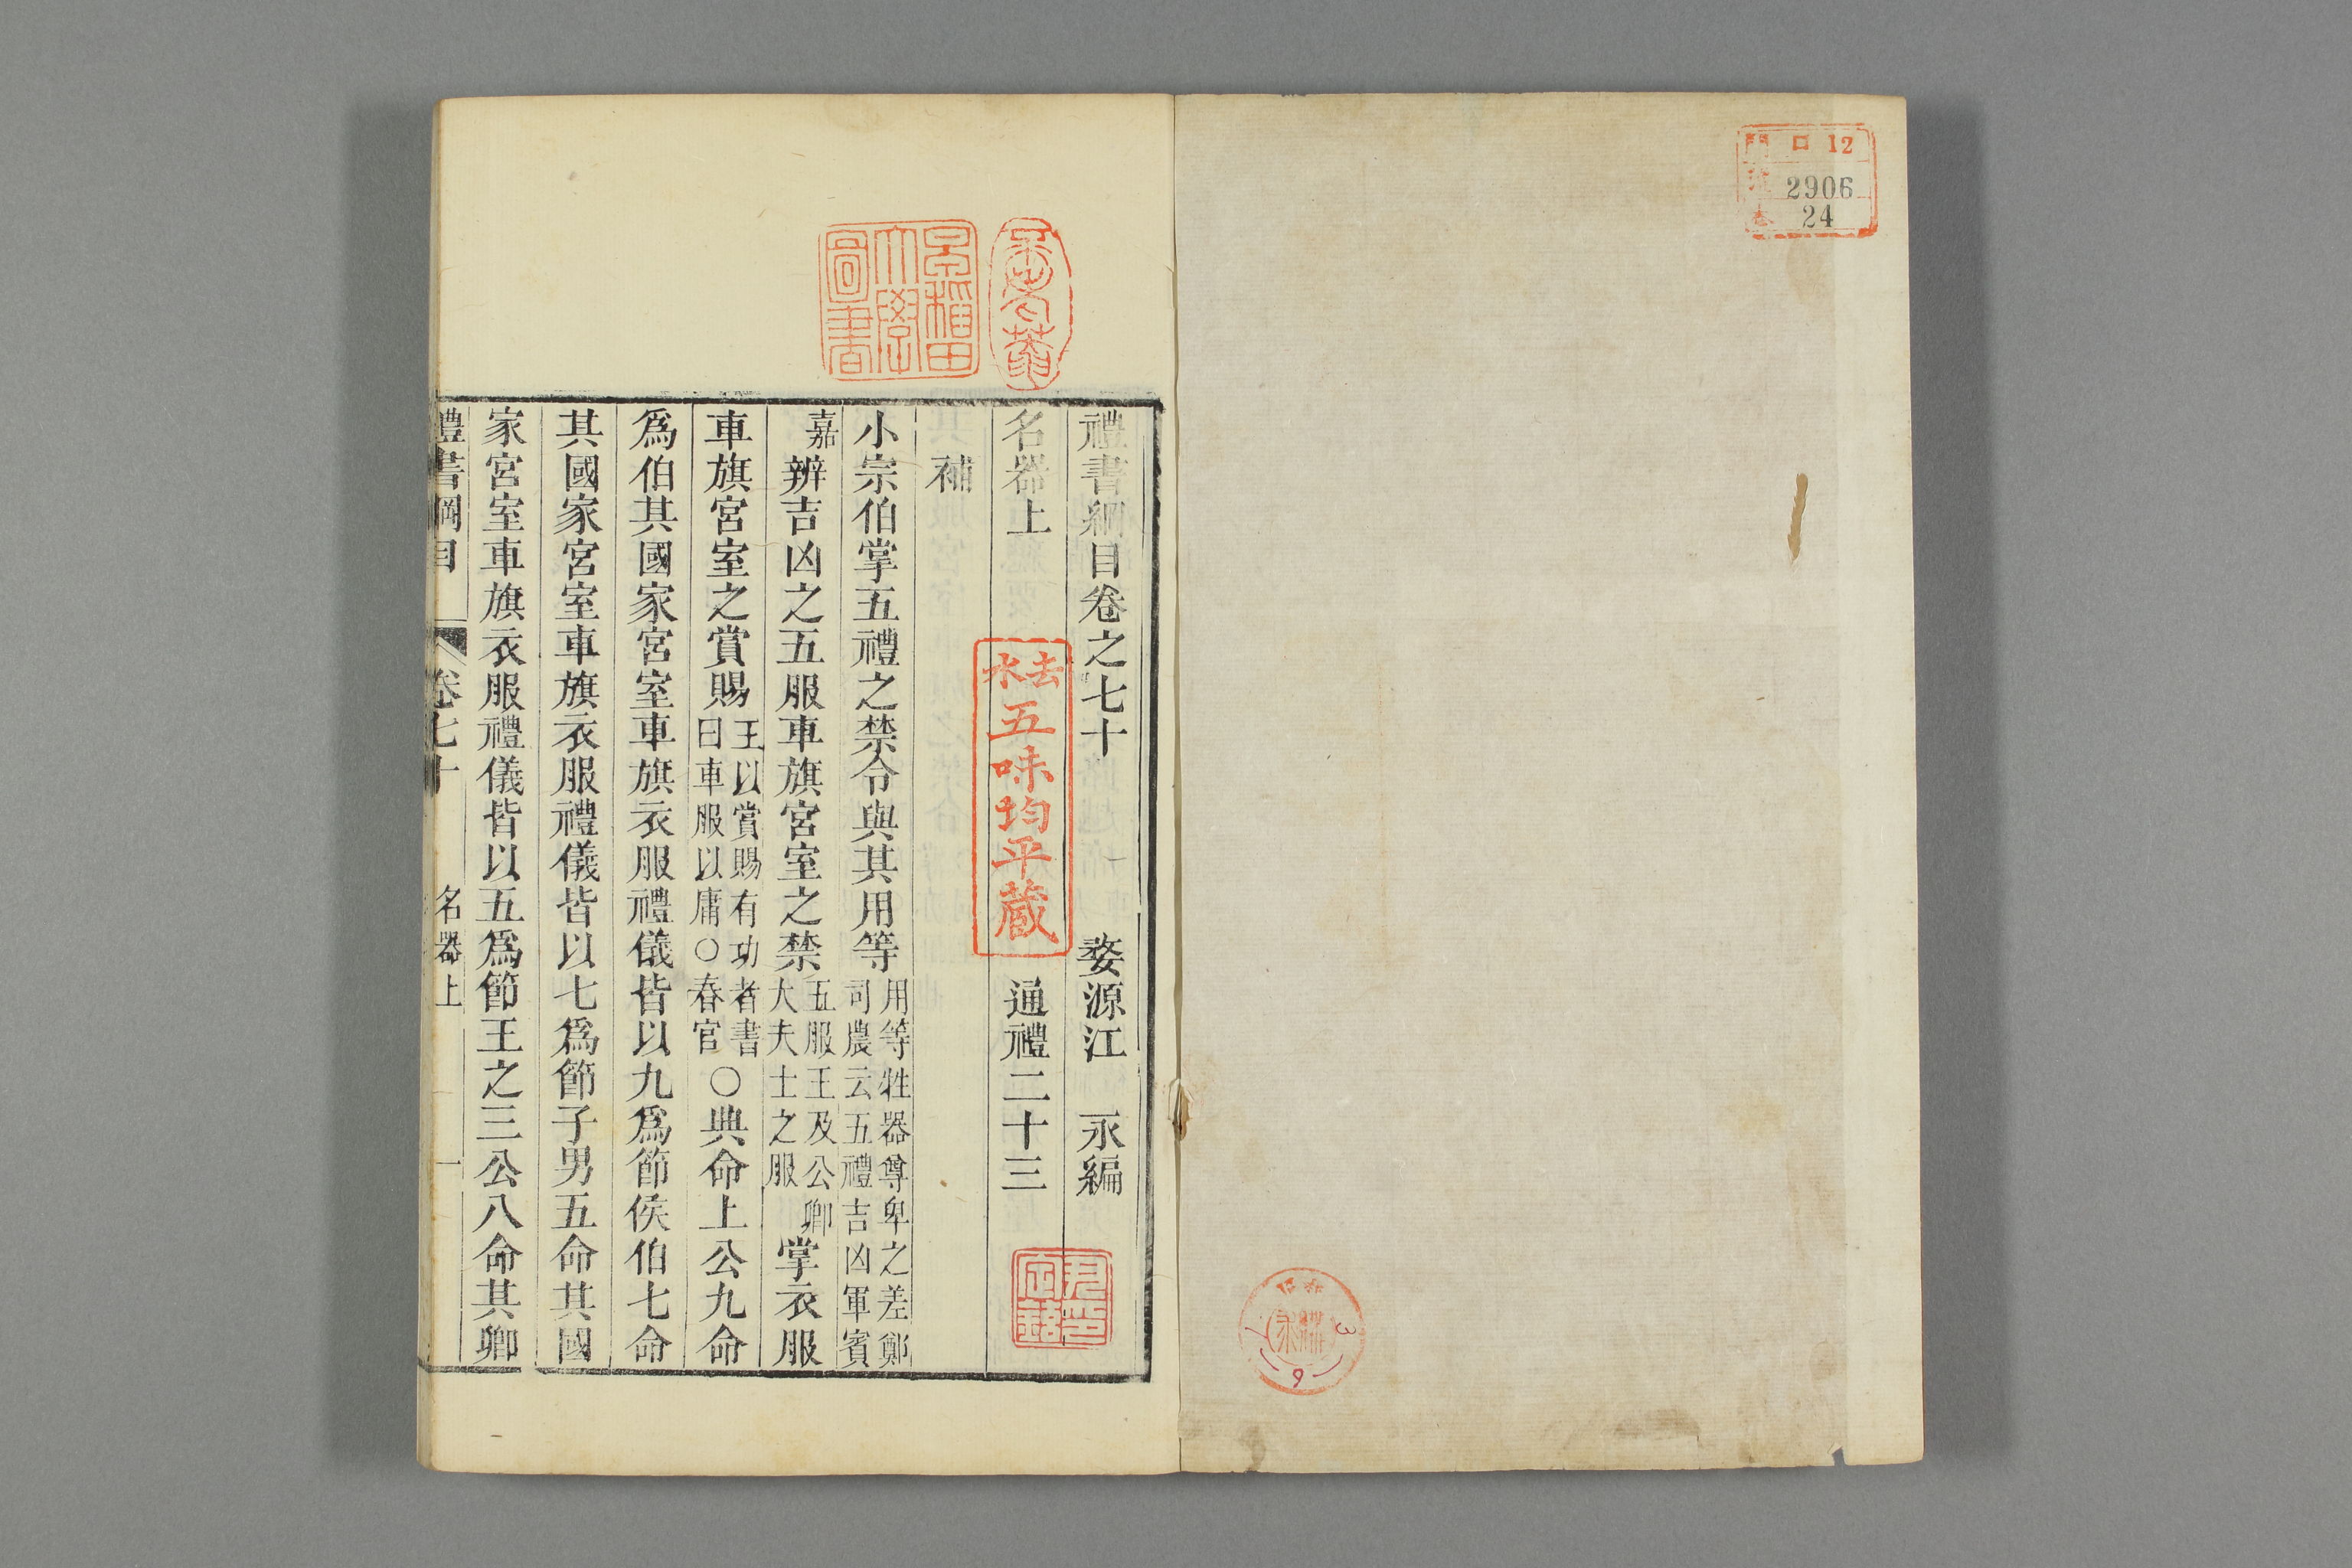 門 口12
號 2906
卷 24
禮書綱目卷之七十 婺源江 永編
名器上 通禮二十三
補
小宗伯掌五禮之禁令與其用等用等牲器尊卑之差鄭
司農云五禮吉凶軍賓
嘉辨吉凶之五服車旗宮室之禁五服王及公卿
大夫士之服掌衣服
車旗宮室之賞賜王以賞賜有功者書
曰車服以庸○春官○典命上公九命
爲伯其國家宮室車旗衣服禮儀皆以九爲節侯伯七命
其國家宮室車旗衣服禮儀皆以七爲節子男五命其國
家宮室車旗衣服禮儀皆以五爲節王之三公八命其卿
禮書綱目 卷七十 名器上 一
早稻田
大學
圖書
去水
五味均平藏